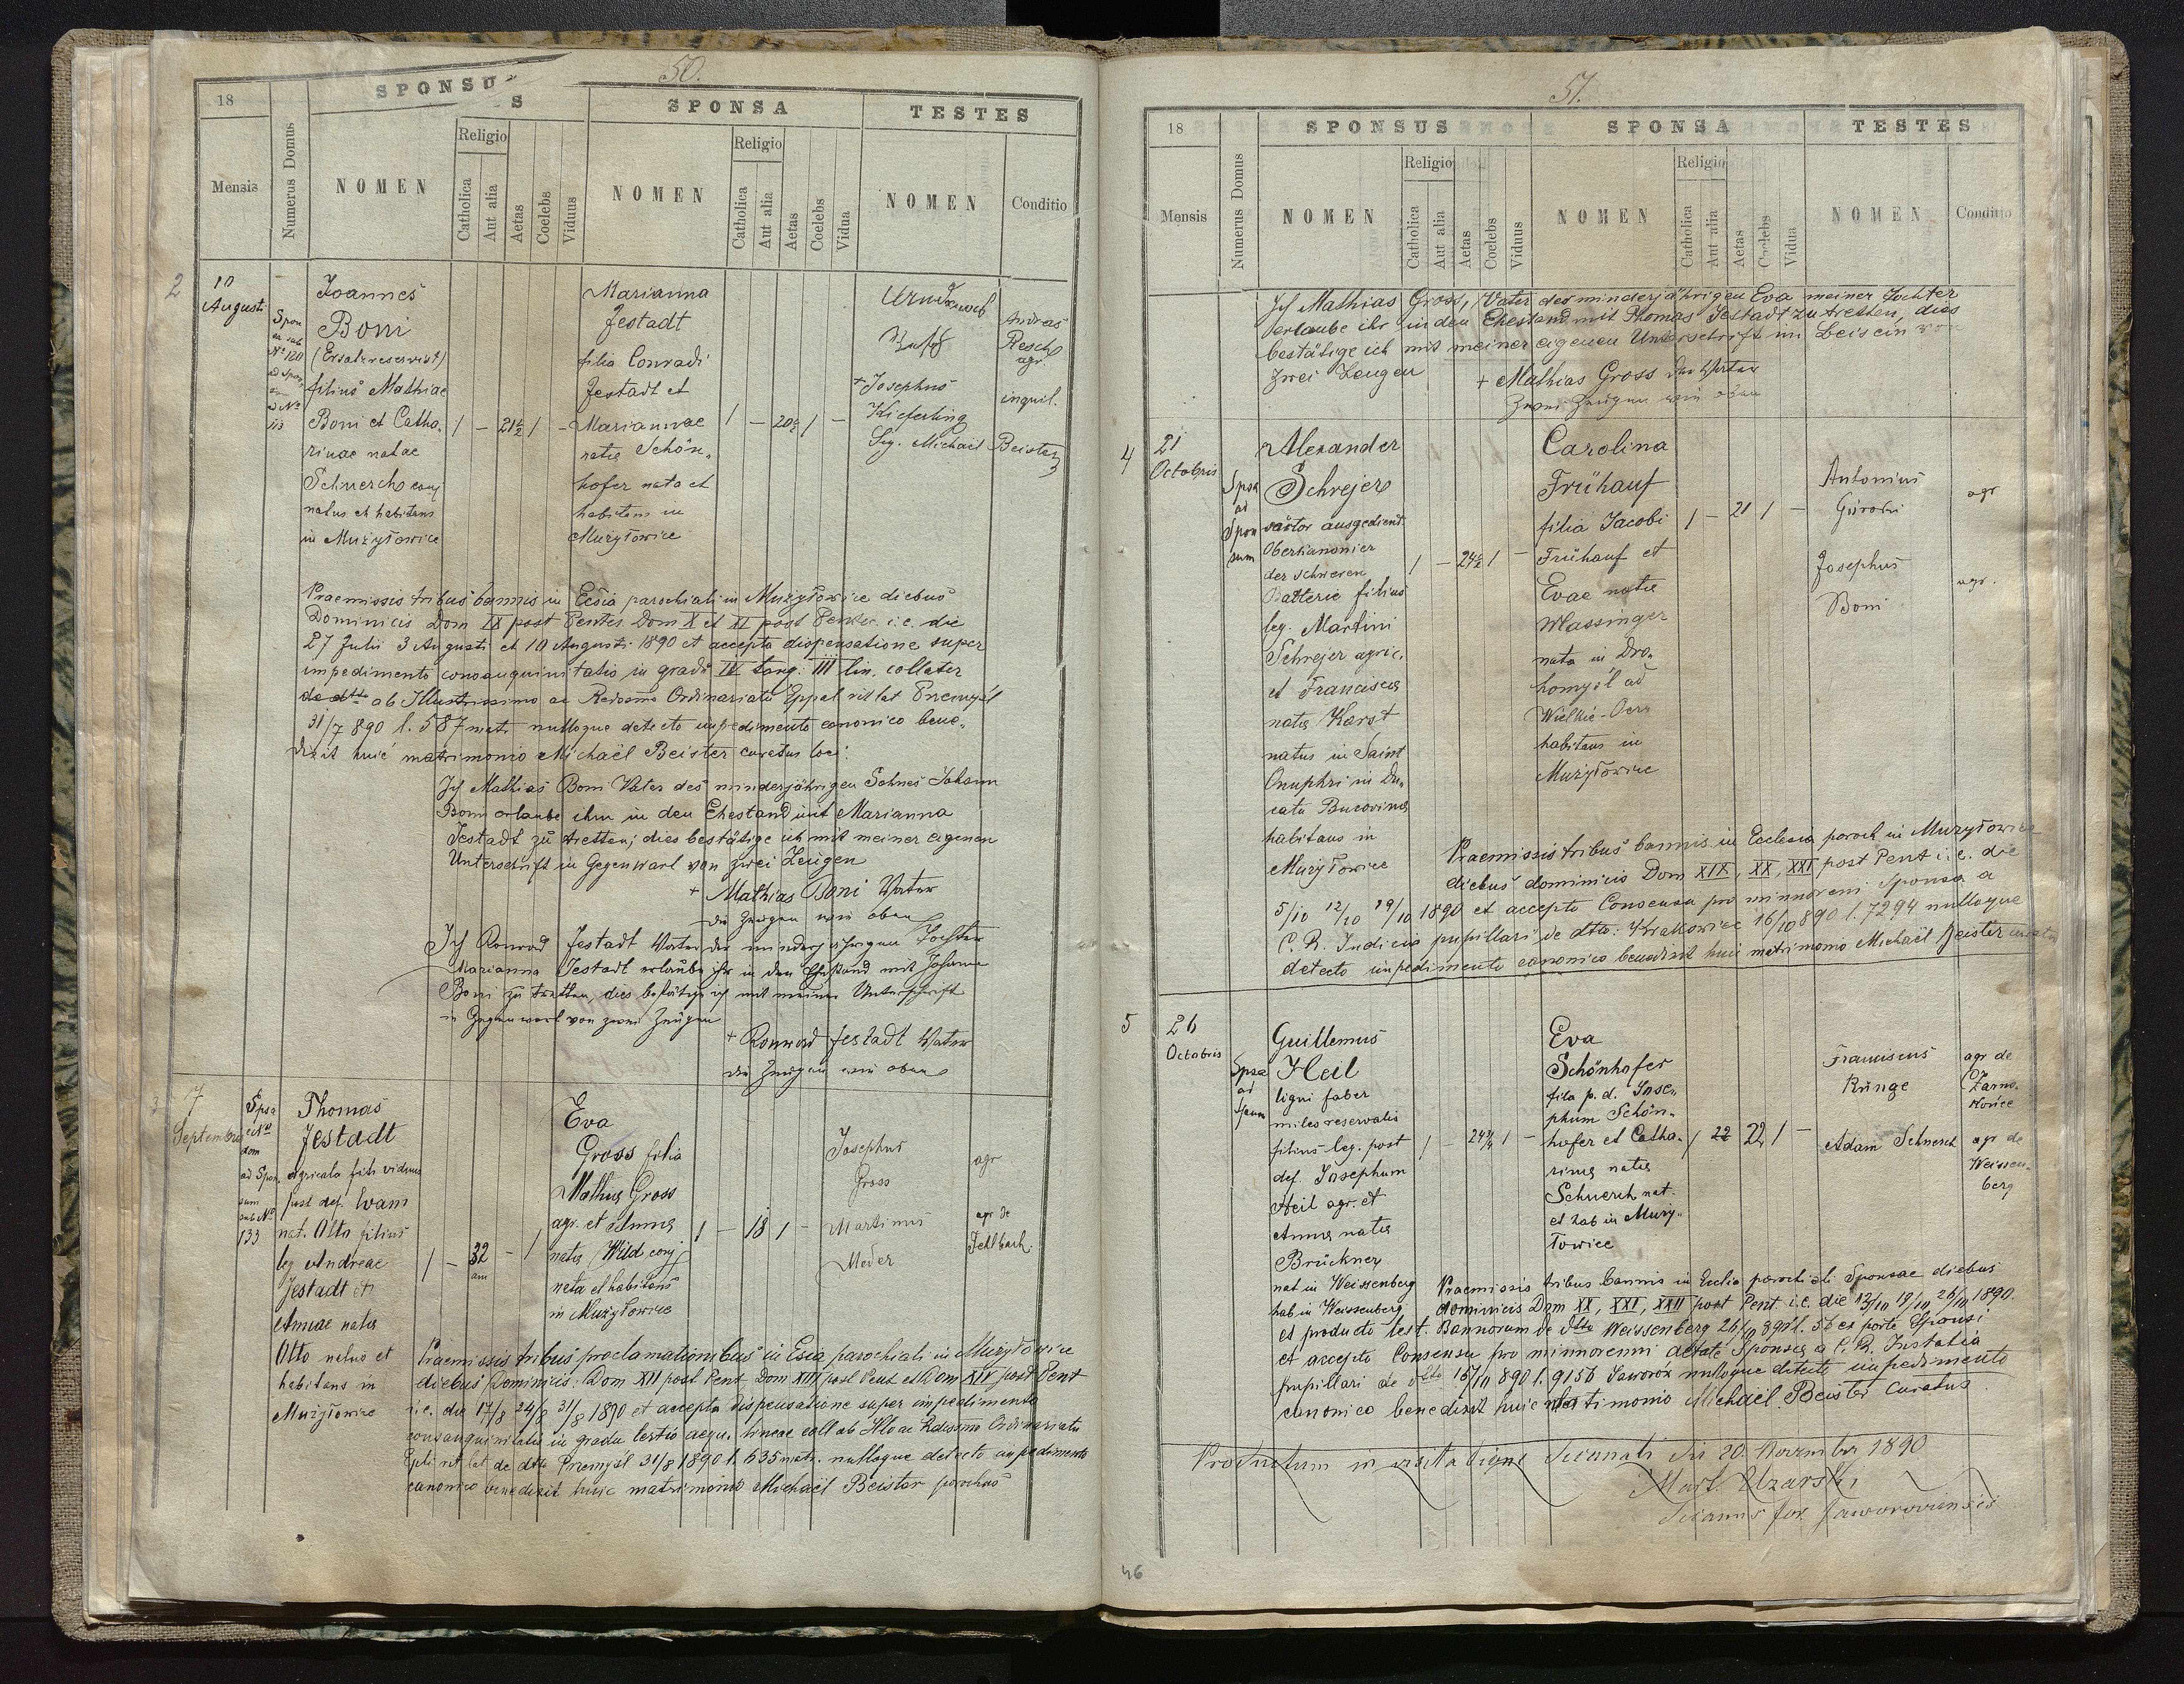 50.
18
SPONSUS
SPONSA
TESTES
Mensis
Numerus Domus
NOMEN
Religio
Catholica
Aut alia
Aetas
Coelebs
Viduus
NOMEN
Religio
Catholica
Aut alia
Aetas
Coelebs
Vidua
NOMEN
Conditio
2
10
Augusti
Spon
sa sub
Nº 120
ad Spon
ad Nº
113
Joannes
Boni
(Ersatzreservist)
filius Mathiae
Boni et Catha-
rinae natae
Schnerch conj
natus et habitans
in Mużyłowice
1 — 21½ 1 —
Marianna
Jestadt
filia Conradi
Jestadt et
Mariannae
natae Schön-
hofer nata et
habitans in
Mużyłowice
1 — 20½ 1 —
Andreas
Resch
agr.
+ Josephus
Kieferling
inquil.
Sig. Michaël Beister
Praemissis tribus bannis in Ecsia parochiali in Mużyłowice diebus
Dominicis Dom IX post Pentec. Dom X et XI post Pentec. i.e. die
27 Julii 3 Augusti et 10 Augusti 1890 et accepta dispensatione super
impedimento consanquinitatis in gradu IV tang: III lin. collater
de dtto ab Illustrissimo ac Redssmo Ordinariatu Eppal rit lat Przemyśl
31/7 890 l. 587 matr nulloque detecto impedimento canonico bene-
dixit huic matrimonio Michaël Beister curatus loci
Ich Mathias Boni Vater des minderjährigen Sohnes Johann
Boni erlaube ihm in den Ehestand mit Marianna
Jestadt zu tretten; dies bestätige ich mit meiner eigenen
Unterschrift in Gegenwart von zwei Zeugen
+ Mathias Boni Vater
die Zeugen wie oben
Ich Konrad Jestadt Vater der minderjährigen Tochter
Marianna Jestadt erlaube ihr in den Ehestand mit Johann
Boni zu tretten, dies bestätige ich mit meiner Unterschrift
in Gegenwart von zwei Zeugen
+ Konrad Jestadt Vater
die Zeugen wie oben
3
7
Septembris
Spsa
e Nº
dom
ad Spon-
sum
sub Nº
133
Thomas
Jestadt
agricola fili viduus
post def. Evam
nat. Otto filius
leg Andreae
Jestadt et
Annae natae
Otto natus et
habitans in
Mużyłowice
1 — 32 — 1
ann
Eva
Gross filia
Mathiae Gross
agr. et Annae
natae Wild conj
nata et habitans
in Mużyłowice
1 — 18 1 —
Josephus
Gross
agr
Martinus
Meder
agr de
Fehlbach
Praemissis tribus proclamationibus in Esia parochiali in Mużyłowice
diebus Dominicis. Dom XII post Pent Dom XIII post Pent et Dom XIV post Pent
i.e. die 17/8 24/8 31/8 1890 et accepta dispensatione super impedimento
consanquinitatis in gradu tertio aequ. lineae coll ab Illo ac Rdissmo Ordinariatu
Eppli rit lat de dtto Przemyśl 31/8 1890 l. 635 matr. nulloque detecto impedimento
canonico benedixit huic matrimonio Michaël Beister parochus
51.
18
SPONSUS
SPONSA
TESTES
Mensis
Numerus Domus
NOMEN
Religio
Catholica
Aut alia
Aetas
Coelebs
Viduus
NOMEN
Religio
Catholica
Aut alia
Aetas
Coelebs
Vidua
NOMEN
Conditio
Ich Mathias Gross, Vater der minderjährigen Eva meiner Tochter
erlaube ihr in den Ehestand mit Thomas Jestadt zu tretten, dies
bestätige ich mit meiner eigenen Unterschrift im Beisein von
zwei Zeugen
+ Mathias Gross der Vater
Zwei Zeugen wie oben
4
21
Octobris
Spsa
ad
Spon
sum
Alexander
Schrejer
sartor ausgedient
Oberkanonier
der schweren
Batterie filius
leg. Martini
Schrejer agric.
et Franciscae
natae Karst
natus in Saint
Onuphri in Du-
catu Bucovinae
habitans in
Mużyłowice
1 — 24½ 1 —
Carolina
Frühauf
filia Jacobi
Frühauf et
Evae natae
Wlassinger
nata in Dro-
homyśl ad
Wielkie-Oczy
habitans in
Mużyłowice
1 — 21 1 —
Antonius
agr
Josephus
Boni
agr.
Praemissis tribus bannis in Ecclesia paroch in Mużyłowice
diebus dominicis Dom XIX, XX, XXI post Pent i.e. die
5/10 12/10 19/10 1890 et accepto Consensu pro minoreni Sponsa a
C. R. Judicio pupillari de dtto: Krakowiec 16/10 890 l. 7294 nulloque
detecto impedimento canonico benedixit huic matrimonio Michaël Beister curatus
5
26
Octobris
Spsa
ad
Spum
Guillemus
Heil
ligni faber
miles reservatis
filius leg. post
def. Josephum
Heil agr. et
Annae natae
Brückner
nat in Weissenberg
hab in Weissenberg
1 — 24¾ 1 —
Eva
Schönhofer
filia p. d. Jose-
phum Schön-
hofer et Catha-
rinae natae
Schnerch nat.
et hab in Muży-
łowice
1 22 22 1 —
Franciscus
Runge
agr de
Żarno-
Adam Schnerch
agr de
Weissen-
berg
Praemissis tribus bannis in Ecclia parochiali Sponsae diebus
dominicis Dom XX, XXI, XXII post Pent. i.e. die 12/10 19/10 26/10 1890.
et producto test. Bannorum de dtto Weissenberg 26/10 890 l. 56 ex parte Sponsi
et accepto Consensu pro minorenni aetate Sponsae a C. R. Instatia
pupillari de dtto 16/10 890 l. 9156 Jaworów nulloque detecto impedimento
canonico benedixit huic matrimonio Michaël Beister Curatus
Productum in visitatione Decanali die 20. Novembr 1890
Mart. Uzarski
Decanus for. Jaworoviensis
46